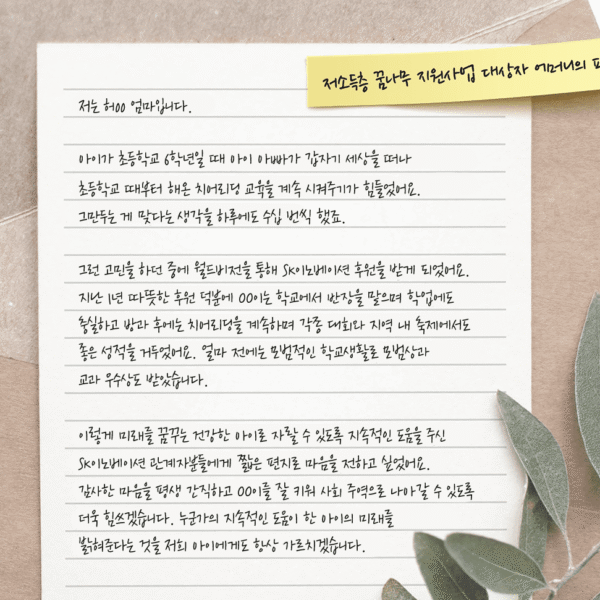 저소득층 꿈나무 지원사업 대상자 어머니의
저는 허00 엄마입니다.
아이가 초등학교 6학년일 때 아이 아빠가 갑자기 세상을 떠나
초등학교 때부터 해온 치어리딩 교육을 계속 시켜주기가 힘들었어요.
그만두는 게 맞다는 생각을 하루에도 수십 번씩 했죠.
그런 고민을 하던 중에 월드비전을 통해 SK이노베이션 후원을 받게 되었어요.
지난 1년 따뜻한 후원 덕분에 00이는 학교에서 반장을 맡으며 학업에도
충실하고 방과 후에는 치어리딩을 계속하며 각종 대회와 지역 내 축제에서도
좋은 성적을 거두었어요. 얼마 전에는 모범적인 학교생활로 모범상과
교과 우수상도 받았습니다.
이렇게 미래를 꿈꾸는 건강한 아이로 자랄 수 있도록 지속적인 도움을 주신
SK이노베이션 관계자분들에게 짧은 편지로 마음을 전하고 싶었어요.
감사한 마음을 평생 간직하고 00이를 잘 키워 사회 주역으로 나아갈 수 있도록
더욱 힘쓰겠습니다. 누군가의 지속적인 도움이 한 아이의 미래를
밝혀준다는 것을 저희 아이에게도 항상 가르치겠습니다.